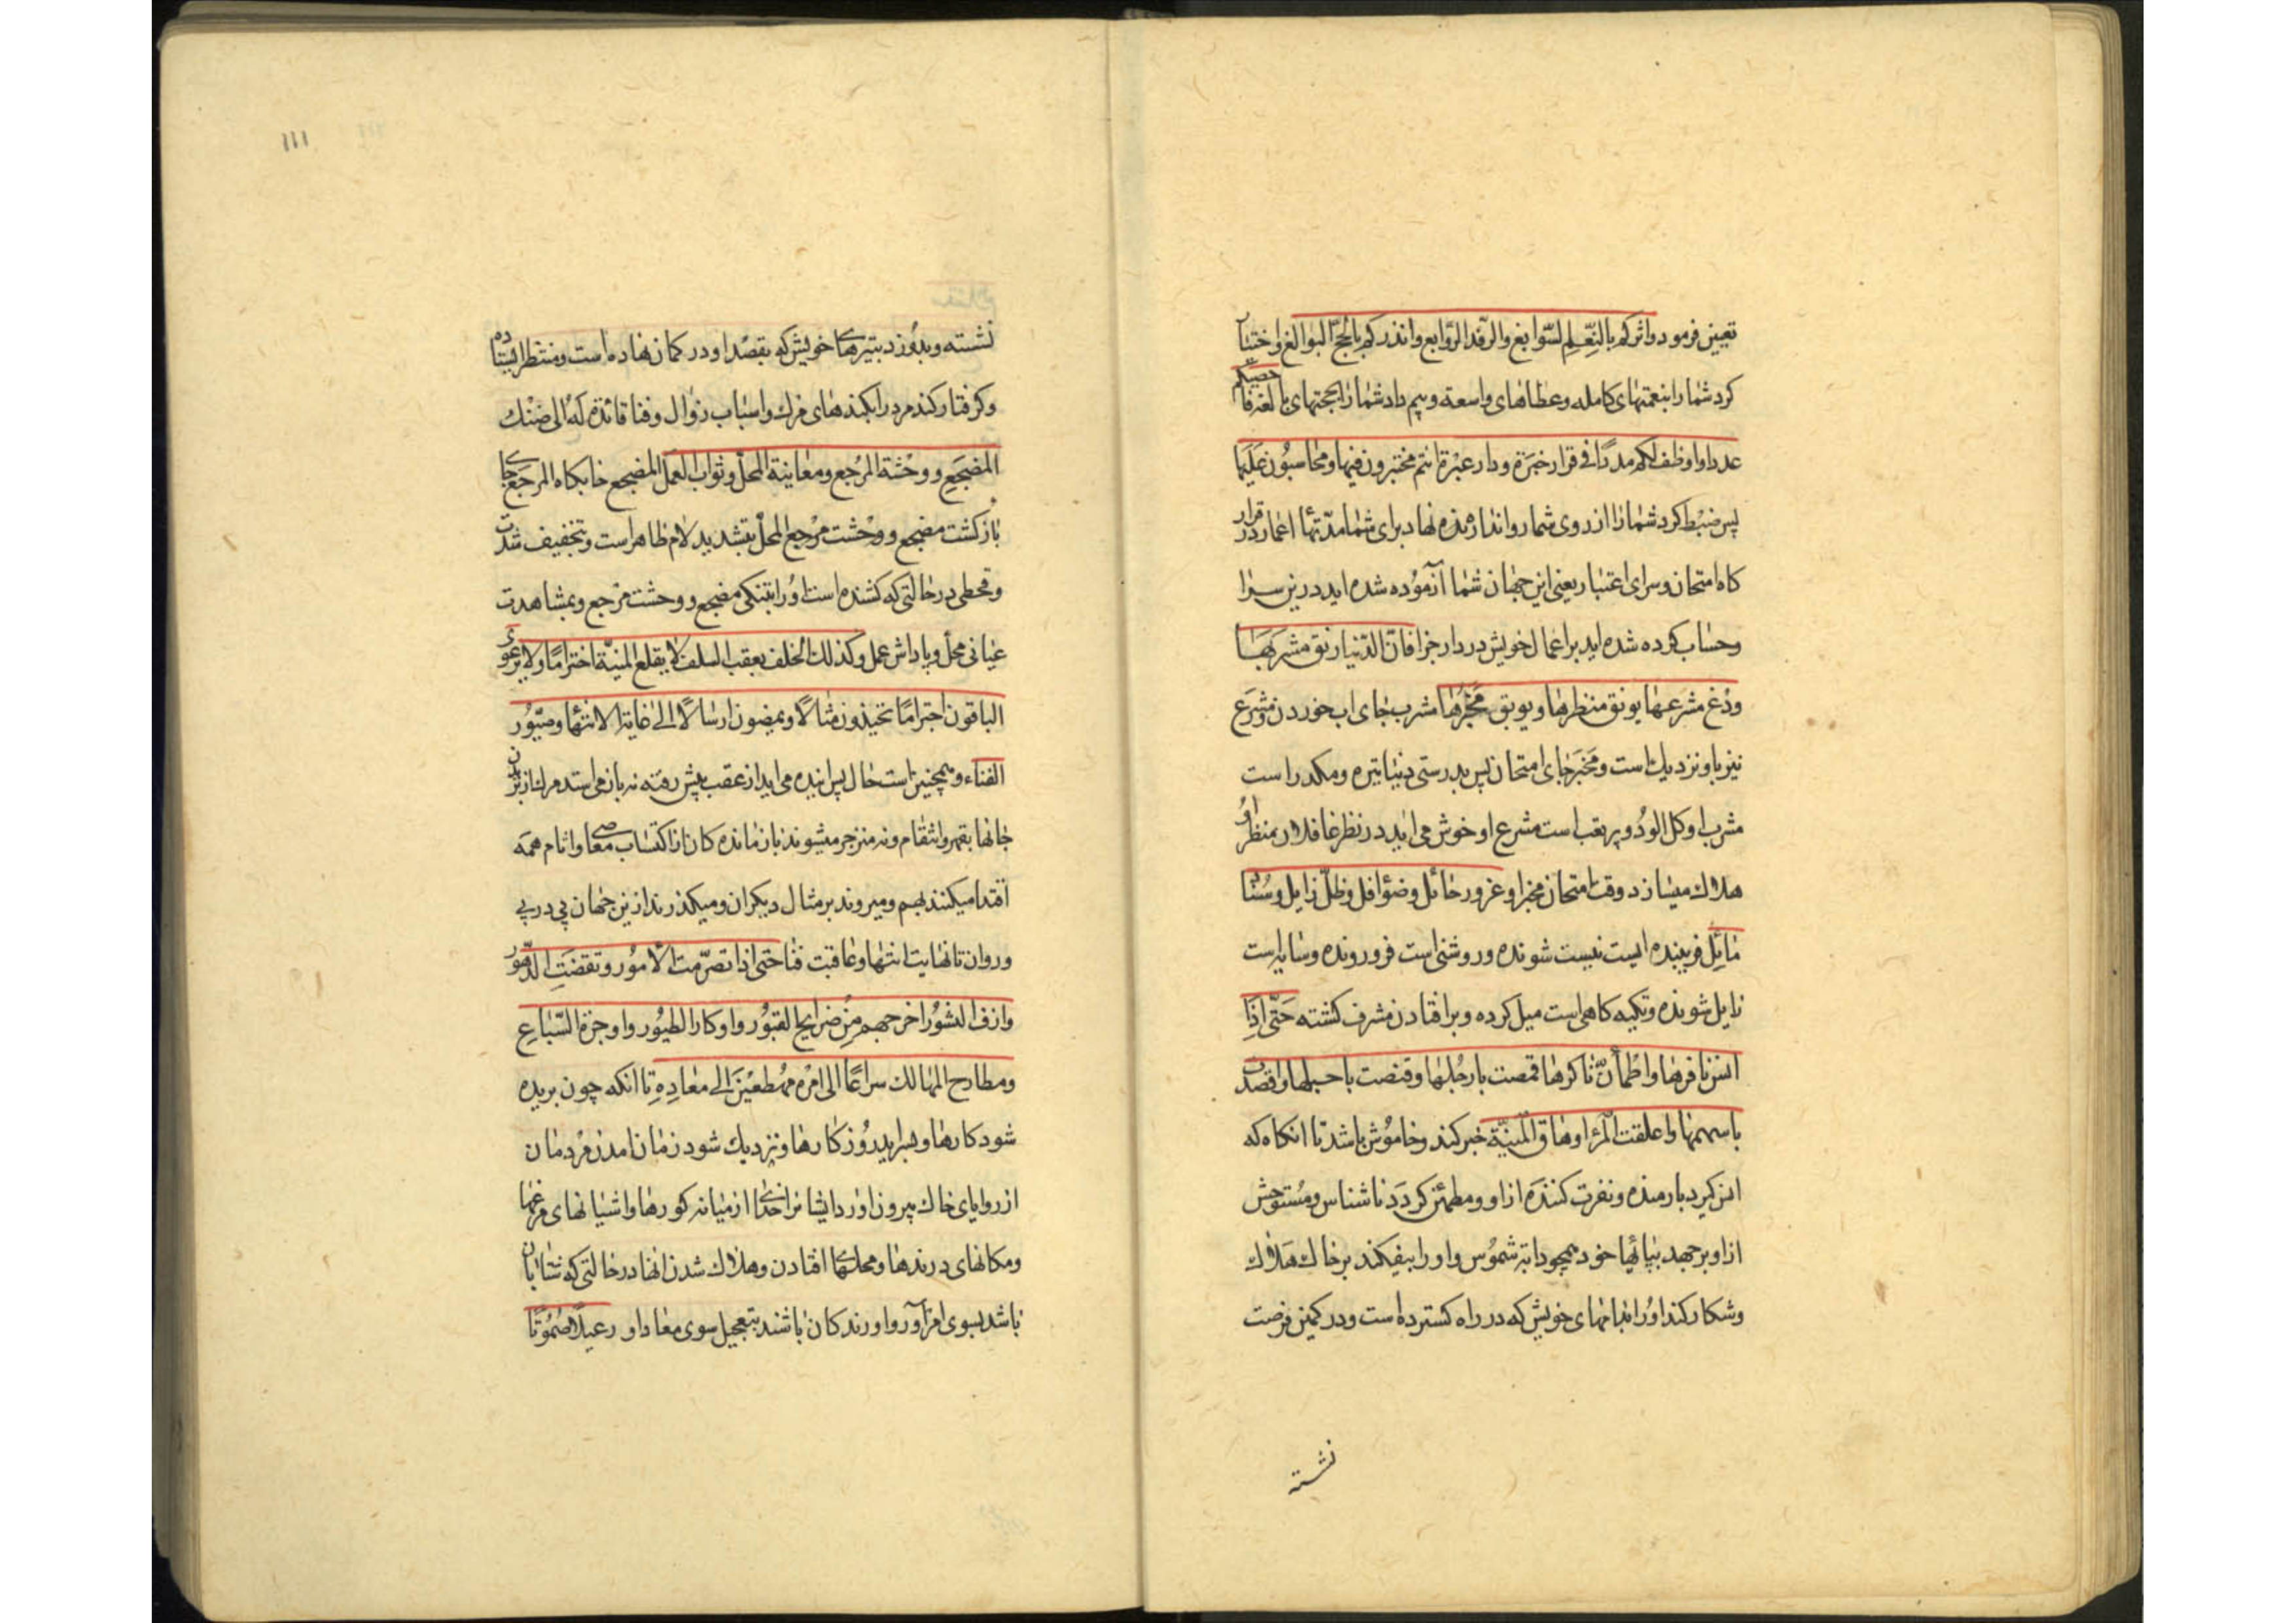 تعیین فرمود واثرکم بالنّعم السّوابغ والرّفد الرّوابع وانذرکم بالحجج البوالغ واختیار
کرد شما را بنعمتهای کامله وعطاهای واسعة وبیم داد شما را بحجتهای بالغه فاحصیکم
عددا و وظف لکم مددًا فی قرار خبرة ودار عبرة انتم مختبرون فیها ومحاسبون علیها
پس ضبط کرد شما را از روی شمار وانداره نهاد برای شما مدّتها اعمار در قرار
کاه امتحان وسرای اعتبار یعنی این جهان شما آزموده شده اید درین سرا
وحساب کرده شده اید بر اعمال خویش در دار جزا فانّ الدّنیا رنق مشربها
ردغ مشرعها یونق منظرها ویوبق مخبرها مشرب جای اب خوردن ومشرع
نیز باو نزدیك است ومخبر جای امتحان پس بدرستی دنیا تیره ومکدر است
مشرب او وکل الود وپر تعب است مشرع او خوش می اید در نظر غافلان منظر او
هلاك میسازد وقت امتحان مخبر او غرور حائل وضوء افل وظلّ زایل وسناد
مائل فریبنده ایست نیست شونده وروشنی است فرو رونده وسایه است
زایل شونده وتکیه کاهی است میل کرده وبر افتادن مشرف کشته حتّی اذا
انس نافرها واطمأنّ ناکرها قمصت بارجلها وقنصت باحبلها واقصدت
باسهمها واعلقت المرء اوهاق المنیّة خبر کند وخاموش باشد تا انکاه که
انس کیرد بار منده ونفرت کننده از او ومطمئن کردد ناشناس ومستوحش
از او برجهد بپایهای خود همچو دابّه شموس واو را بیفکند بر خاك هلاك
وشکار کند او را بدامهای خویش که در راه کسترده است ودر کمین فرصت
نشسته
۱۱۱
نشسته وبدوزد بتیرهای خویش که بقصد او در کمان نهاده است ومنتظر ایستاده
وکرفتار کند مرد را بکمندهای مرك واسباب زوال وفنا قائدة له الی ضنك
المضجع ووحشة المرجع ومعاینة المحلّ وثواب العمل المضجع خابکاه المرجع جای
بازکشت مضجع ووحشت مرجع المحلّ بتشدید لام ظاهر است وتخفیف شدت
وقحطی در حالتی که کشنده است او را بتنکی مضجع ووحشت مرجع وبمشاهدت
عیانی محلّ وپاداش عمل وکذلك الخلف یعقب السلف لا یقلع المنیّة اختراما ولا یرعوی
الباقون اجتراما یحتذون مثالًا ویمضون ارسالًا الی غایة الانتهاء وصیّور
الفناء وهمچنین است حال پس اینده می اید از عقب پیش رفته نه باز می استد مرك از بردن
جانها بقهر وانتقام ونه منزجر میشوند باز مانده کان از اکتساب معاصی واثام همه
اقتدا میکنند بهم ومیروند بر مثال دیکران ومیکذرند ازین جهان پی در پی
وروان تا نهایت انتها وعاقبت فنا حتی اذا تصرّمت الامور وتقضّت الدّهور
وازف النشور اخرجهم من ضرایح القبور واوکار الطیور واوجرة السّباع
ومطارح المهالك سراعًا الی امره مهطعین الی معاده تا انکه چون بریده
شود کارها وبسر اید روزکارها ونزدیك شود زمان امدن مردمان
از زوایای خاك بیرون اورد ایشانرا خدای از میانه کورها واشیانهای مرغها
ومکانهای درندها ومحلهای افتادن وهلاك شدن انها در حالتی که شتابان
باشد بسوی امر او رو اورندکان باشند بتعجیل سوی معاد او رعیلًا صموتًا